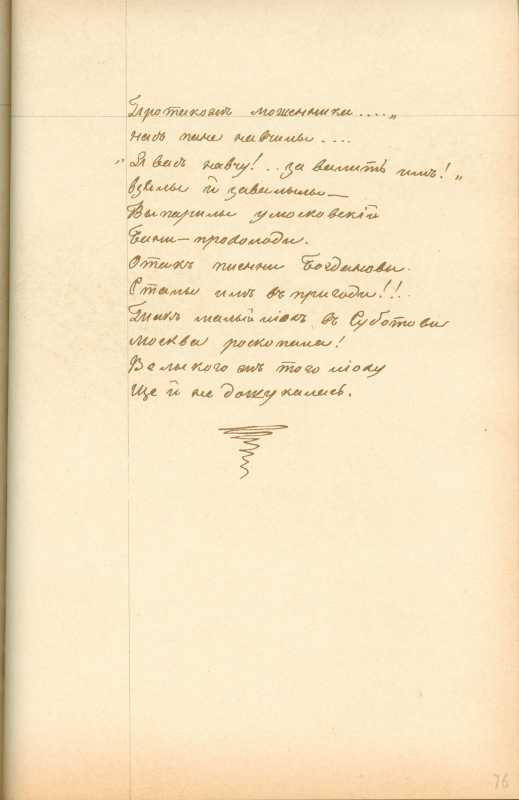 Протакожъ моженники....„
насъ пане навчилы....
„Я васъ навчу!.. завалить имъ!„
взялы й завалылы—
Выпарылы умосковскій
Бани—прохолоди.
Отакъ писнни Богданови.
Сталы имъ въ пригоди!!!.
Такъ малый лёхъ въ Суботови
Москва роскопала!
Велыкого жъ того лёху
Ще й не дошукалась.
76